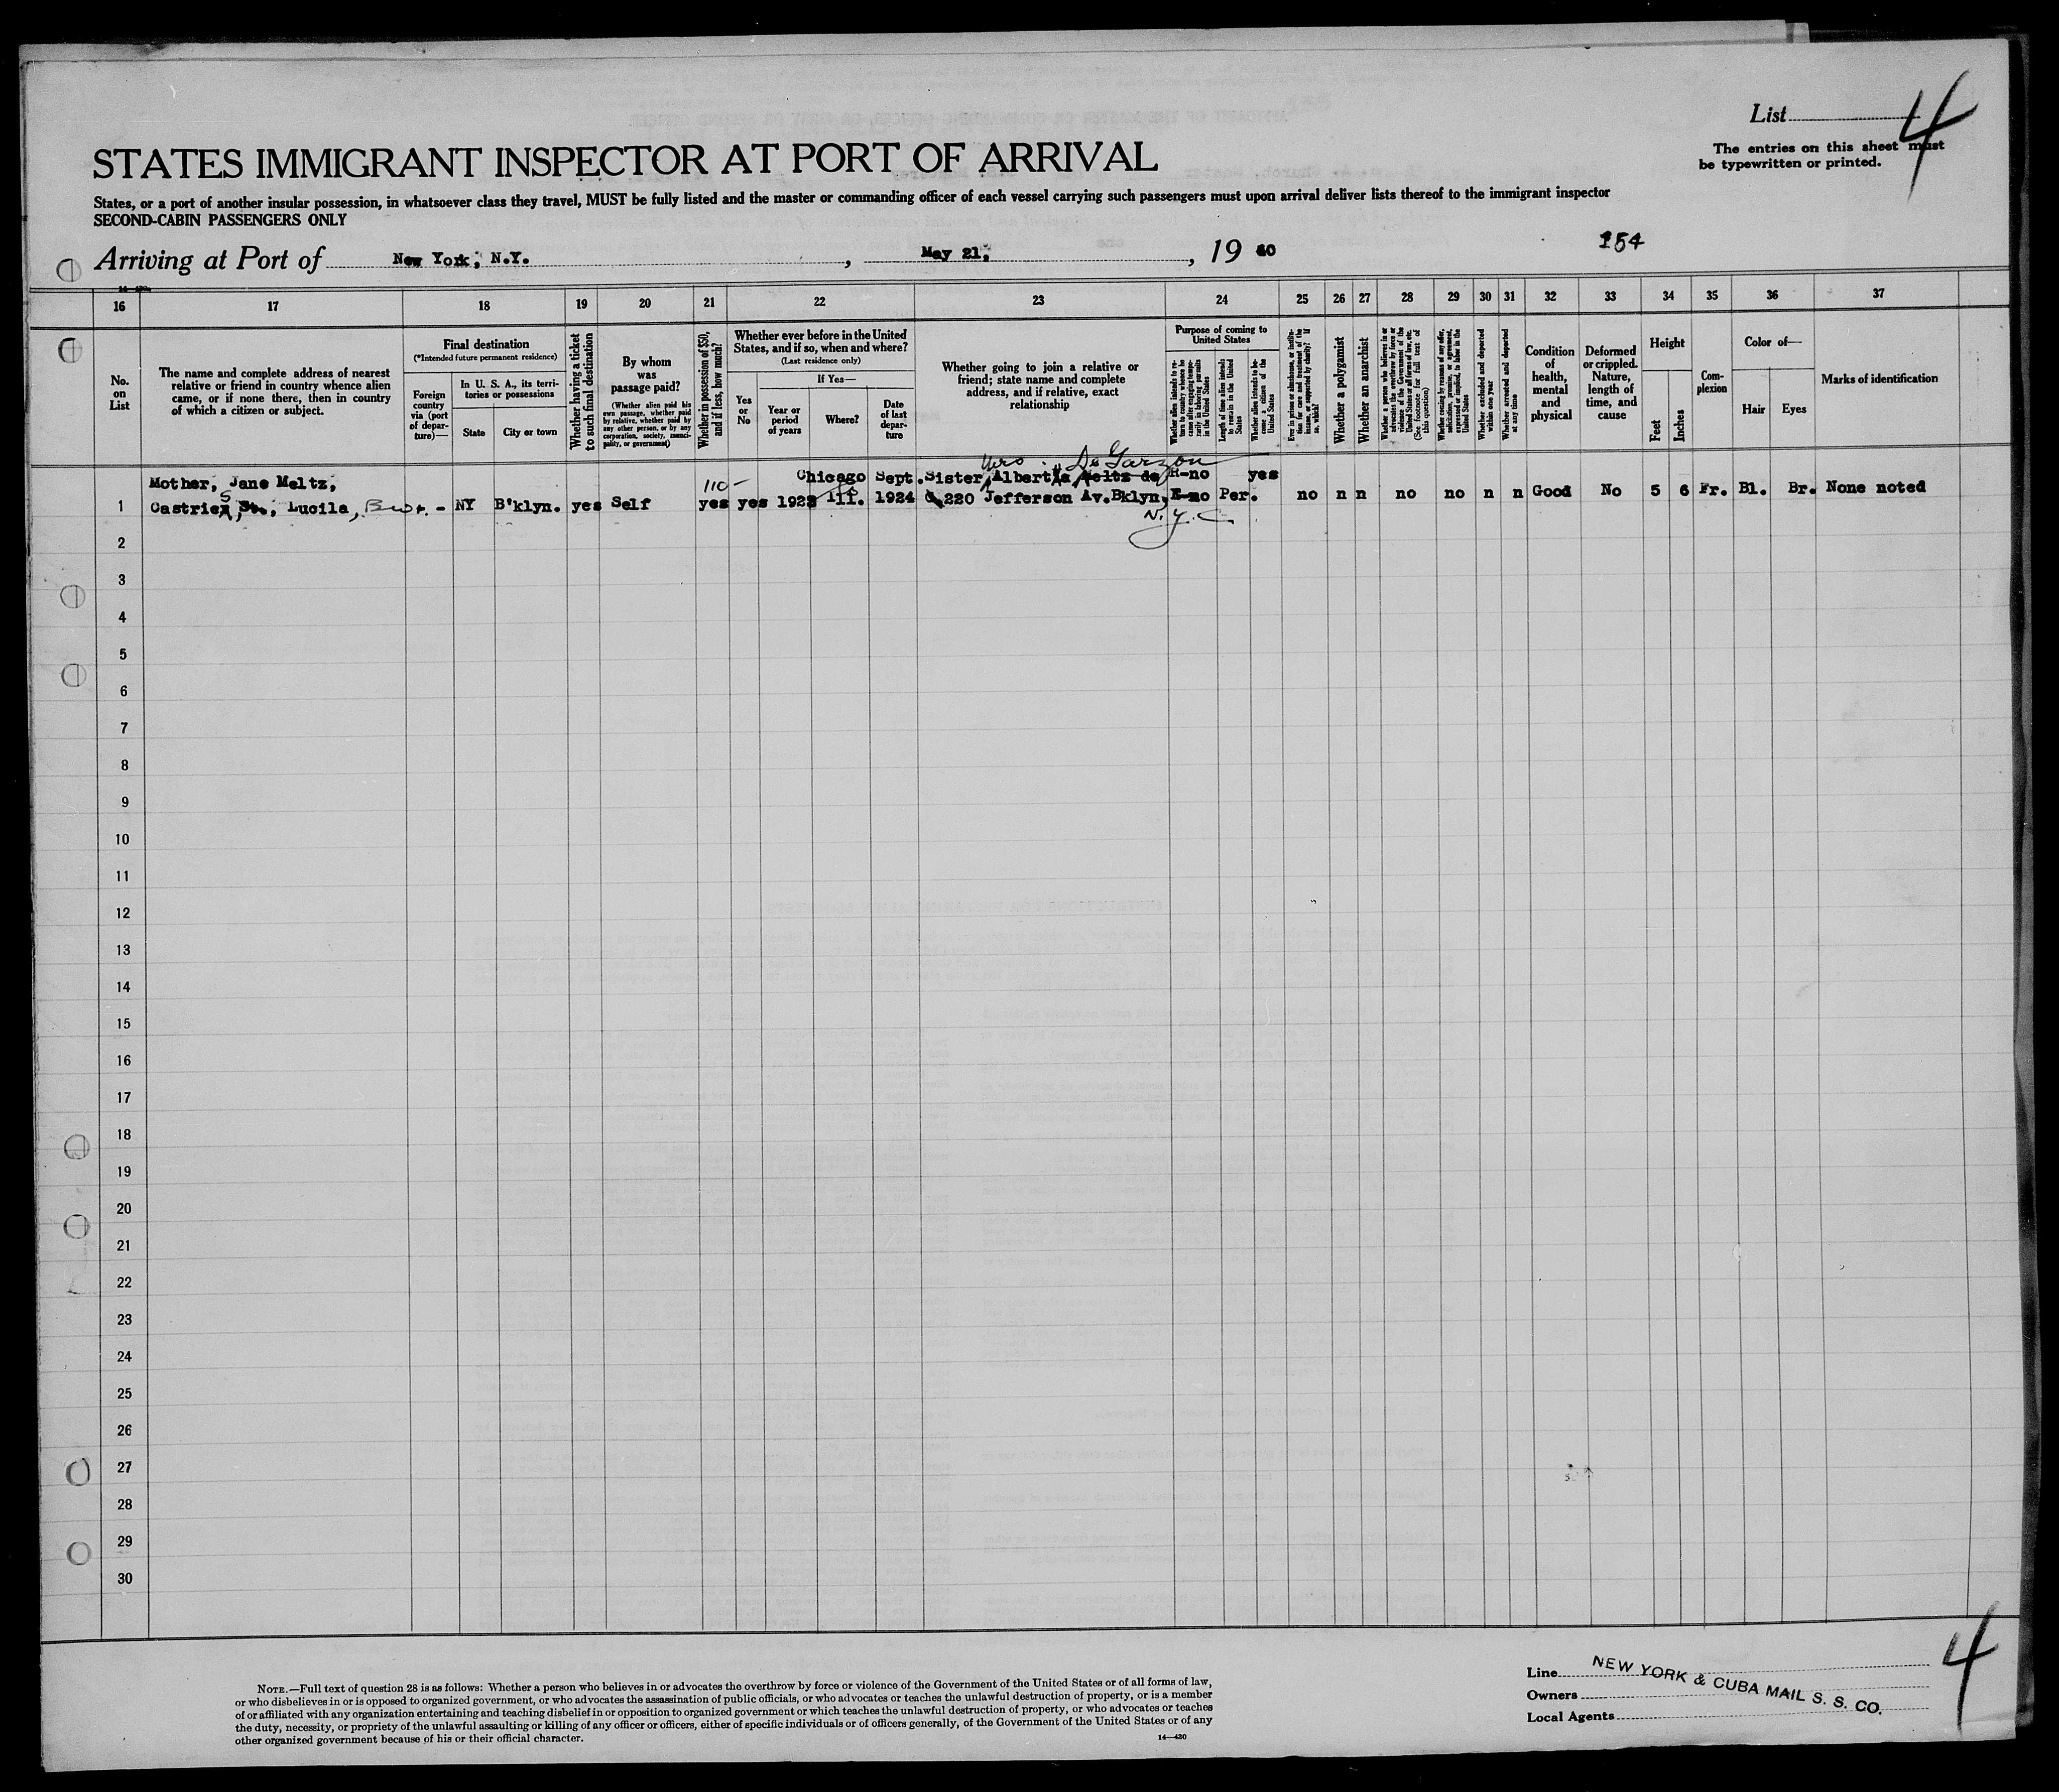 List 4
The entries on this sheet must
be typewritten or printed.
STATES IMMIGRANT INSPECTOR AT PORT OF ARRIVAL
States, or a port of another insular possession, in whatsoever class they travel, MUST be fully listed and the master or commanding officer of each vessel carrying such passengers must upon arrival deliver lists thereof to the immigrant inspector
SECOND-CABIN PASSENGERS ONLY
Arriving at Port of New York, N.Y. , May 21, , 19 40
254
16 17 18 19 20 21 22 23 24 25 26 27 28 29 30 31 32 33 34 35 36 37
No.
on
List
The name and complete address of nearest
relative or friend in country whence alien
came, or if none there, then in country
of which a citizen or subject.
Final destination
(*Intended future permanent residence)
Foreign
country
via (port
of depar-
ture)—
In U. S. A., its terri-
tories or possessions
State
City or town
Whether having a ticket
to such final destination
By whom
was
passage paid?
(Whether alien paid his
own passage, whether paid
by relative, whether paid by
any other person, or by any
corporation, society, munici-
pality, or government)
Whether in possession of $50,
and if less, how much?
Whether ever before in the United
States, and if so, when and where?
(Last residence only)
If Yes—
Yes
or
No
Year or
period
of years
Where?
Date
of last
depar-
ture
Whether going to join a relative or
friend; state name and complete
address, and if relative, exact
relationship
Purpose of coming to
United States
Whether alien intends to re-
turn to country whence he
came after engaging tempo-
rarily in laboring pursuits
in the United States
Length of time alien intends
to remain in the United
States
Whether alien intends to be-
come a citizen of the
United States
Ever in prison or almshouse, or institu-
tion for care and treatment of the
insane, or supported by charity? If
so, which?
Whether a polygamist
Whether an anarchist
Whether a person who believes in or
advocates the overthrow by force or
violence of the Government of the
United States or all forms of law, etc.
(See footnote for full text of
this question)
Whether coming by reason of any offer,
solicitation, promise, or agreement,
expressed or implied, to labor in the
United States
Whether excluded and deported
within one year
Whether arrested and deported
at any time
Condition
of
health,
mental
and
physical
Deformed
or crippled.
Nature,
length of
time, and
cause
Height
Feet
Inches
Com-
plexion
Color of—
Hair
Eyes
Marks of identification
Mrs. De Garzon
Mother, Jane Meltz, 110- Chicago Sept. Sister, Alberta Meltz de R-no yes
1 Castries, St., Lucila, NY B'klyn. yes Self yes yes 1923 Ill. 1924 220 Jefferson Av. Bklyn, E-no Per. no n n no no n n Good No 5 6 Fr. Bl. Br. None noted
N.Y.C
2
3
4
5
6
7
8
9
10
11
12
13
14
15
16
17
18
19
20
21
22
23
24
25
26
27
28
29
30
NOTE.—Full text of question 28 is as follows: Whether a person who believes in or advocates the overthrow by force or violence of the Government of the United States or of all forms of law,
or who disbelieves in or is opposed to organized government, or who advocates the assassination of public officials, or who advocates or teaches the unlawful destruction of property, or is a member
of or affiliated with any organization entertaining and teaching disbelief in or opposition to organized government or which teaches the unlawful destruction of property, or who advocates or teaches
the duty, necessity, or propriety of the unlawful assaulting or killing of any officer or officers, either of specific individuals or of officers generally, of the Government of the United States or of any
other organized government because of his or their official character.
14—430
Line
Owners
Local Agents
NEW YORK & CUBA MAIL S. S. CO.
4